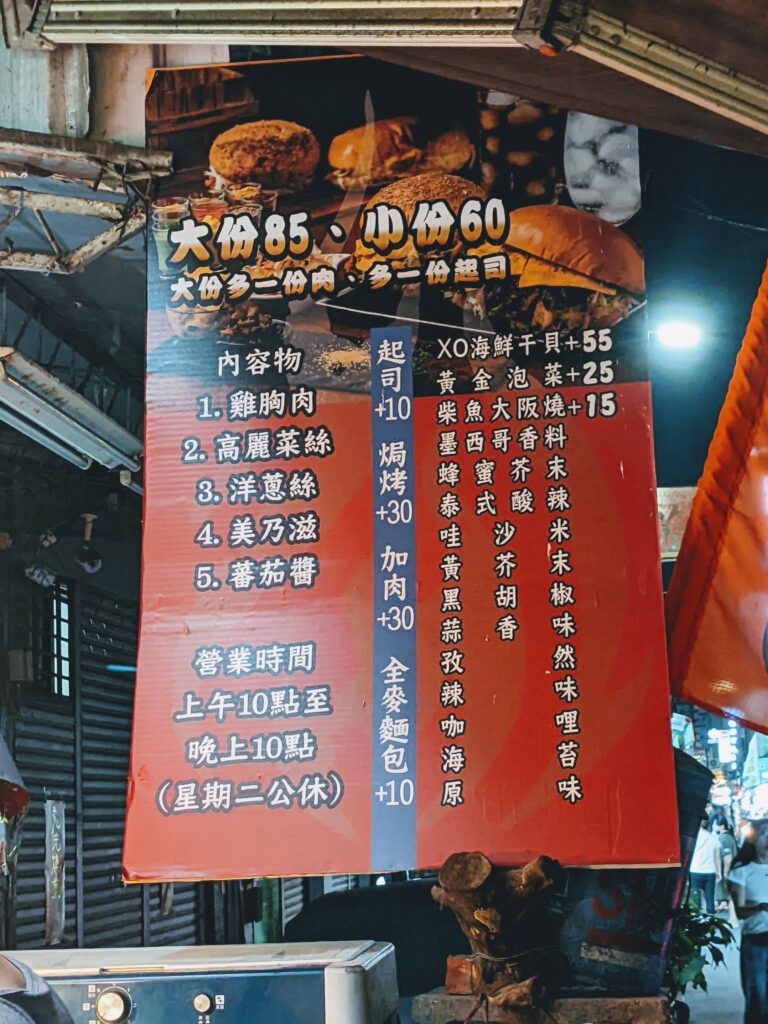 大份85、小份60
大份多一份肉、多一份起司
內容物
1. 雞胸肉
2. 高麗菜絲
3. 洋蔥絲
4. 美乃滋
5. 蕃茄醬
營業時間
上午10點至
晚上10點
(星期二公休)
起司
+10
焗烤
+30
加肉
+30
全麥麵包
+10
XO海鮮干貝+55
黃金泡菜+25
柴魚大阪燒+15
墨西哥香料
蜂蜜芥末
泰式酸辣
哇沙米
黃芥末
黑胡椒
蒜香味
孜然
辣味
咖哩
海苔
原味